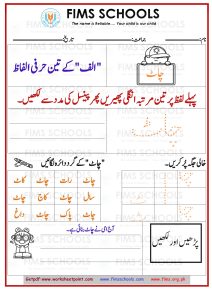 FIMS SCHOOLS
The name is Reliable.... Your child is our child
نام: جماعت: تاریخ:
"الف" کے تین حرفی الفاظ
چاٹ
پہلے لفظ پر تین مرتبہ انگلی پھیریں پھر پنسل کی مدد سے لکھیں۔
خالی جگہ پُر کریں۔
"چاٹ" کے گرد دائرہ لگائیں
چاٹ رات چاٹ کاٹ
ٹاٹ چاٹ
چاٹ پاک چاٹ داغ
پڑھیں اور لکھیں
Getpdf www.worksheetpoint.com www.fimsschools.com www.fims.org.pk